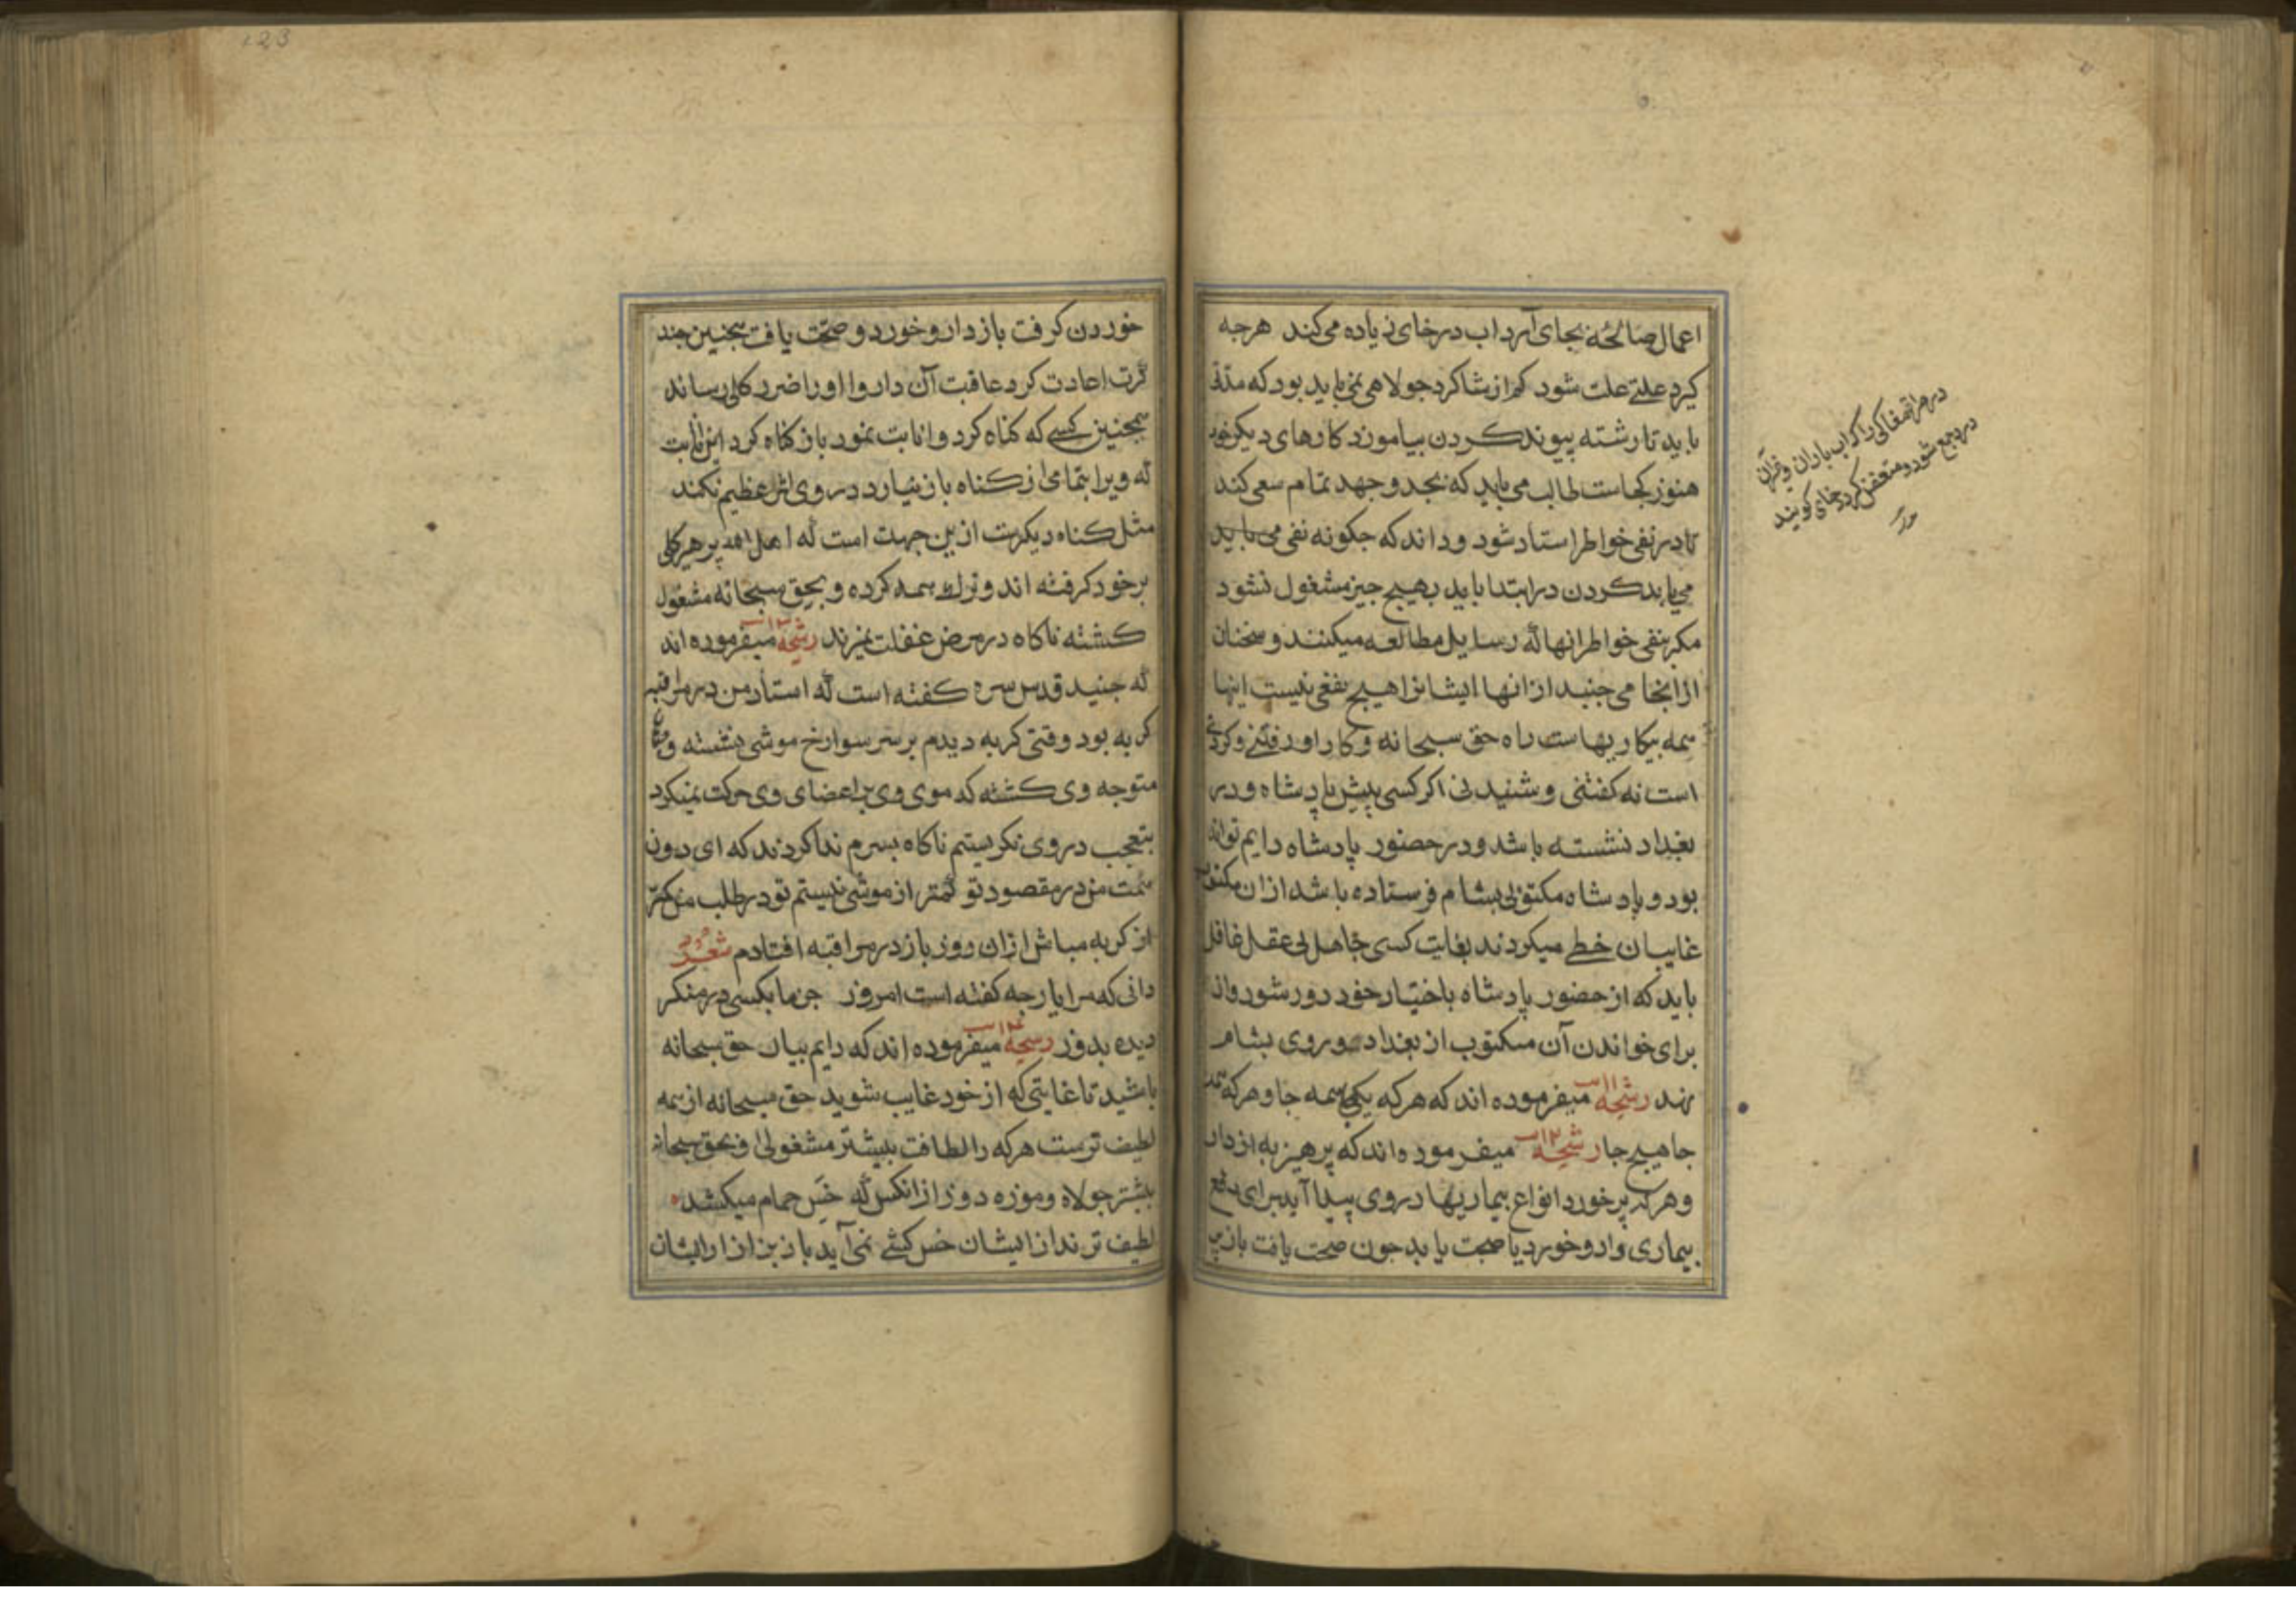 اعمال صالحه بجای آرد اب در خای زیاده می کند هرجه
کیرد علتے علت شود کم از شاکرد جولاهی نمی باید بود که مدتے
باید تا رشته پیوند کردن بیاموزد کارهای دیکر خود
هنوز کجاست طالب می باید که بجد و جهد تمام سعی کند
تا در نفی خواطر استاد شود و داند که جکونه نفی می باید
می باید کردن در ابتدا باید بهیج جیز مشغول نشود
مکر بنفی خواطر انها که رسایل مطالعه میکنند و سخنان
از اینجا می جنبد از انها ایشانرا هیج نفعی نیست اینها
همه بیکاریهاست راه حق سبحانه و کار او رفتنے و کردنے
است نه کفتنی و شنیدنی اکر کسی پیش پادشاه و در
بغداد نشسته باشد و در حضور پادشاه دایم تواند
بود و پادشاه مکتوبی بشام فرستاده باشد از ان مکتوب
غایبان خطے میکردند بغایت کسی جاهل بی عقل غافل
باید که از حضور پادشاه باختیار خود دور شود و از
برای خواندن آن مکتوب از بغداد روی بشام
نهد رشحه میفرموده اند که هرکه یکجا همه جا و هرکه همه
جا هیج جا رشحه میفرموده اند که پرهیز به از دارو
و هرکه پر خورد انواع بیماریها در وی پیدا آید برای دفع
بیماری دارو خورد یا صحت یابد جون صحت یافت باز پر
در هر اتمغاکی را که اب باران و غیرآن
در و جمع شود و متعفن کردد خای کویند
123
خوردن کرفت باز دارو خورد و صحت یافت همجنین جند
کرت اعادت کرد عاقبت آن دارو او را ضرر کلی رساند
همجنین کسے که کناه کرد و انابت نمود باز کناه کرد این انابت
که ویرا بتمامی از کناه باز نیارد در وی اثر عظیم نکند
مثل کناه دیکرست از ین جهت است که اهل الله پرهیز کلی
بر خود کرفته اند و ترک همه کرده و بحق سبحانه مشغول
کشته ناکاه در مرض غفلت نمیرند رشحه میفرموده اند
که جنید قدس سره کفته است که استاد من در مراقبه
کربه بود وقتی کربه دیدم بر سر سوراخ موشی نشسته و جنان
متوجه وی کشته که موی وی بر اعضای وی حرکت نمیکرد
بتعجب در وی نکریستم ناکاه بسرم ندا کردند که ای دون
همت من در مقصود تو کمتر از موشی نیستم تو در طلب من کمتر
از کربه مباش از ان روز باز در مراقبه افتادم شعر
دانی که مرا یار جه کفته است امروز جز ما بکسی در منکر
دیده بدوز رشحه میفرموده اند که دایم بیاد حق سبحانه
باشید تا غایتی که از خود غایب شوید حق سبحانه از همه
لطیف ترست هرکه را لطافت بیشتر مشغولی او بحق سبحانه
بیشتر جولاه و موزه دوز از انکس که خس حمام میکشد
لطیف ترند از ایشان خس کشے نمی آید باز بزازان از ایشان